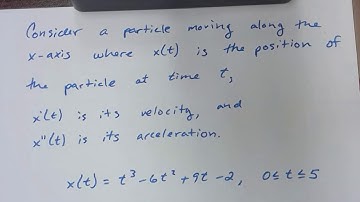 Consider a particle moving along the
x-axis where x(t) is the position of
the particle at time t,
x'(t) is its velocity, and
x"(t) is its acceleration.
x(t) = t³-6t²+9t-2, 0≤t≤5